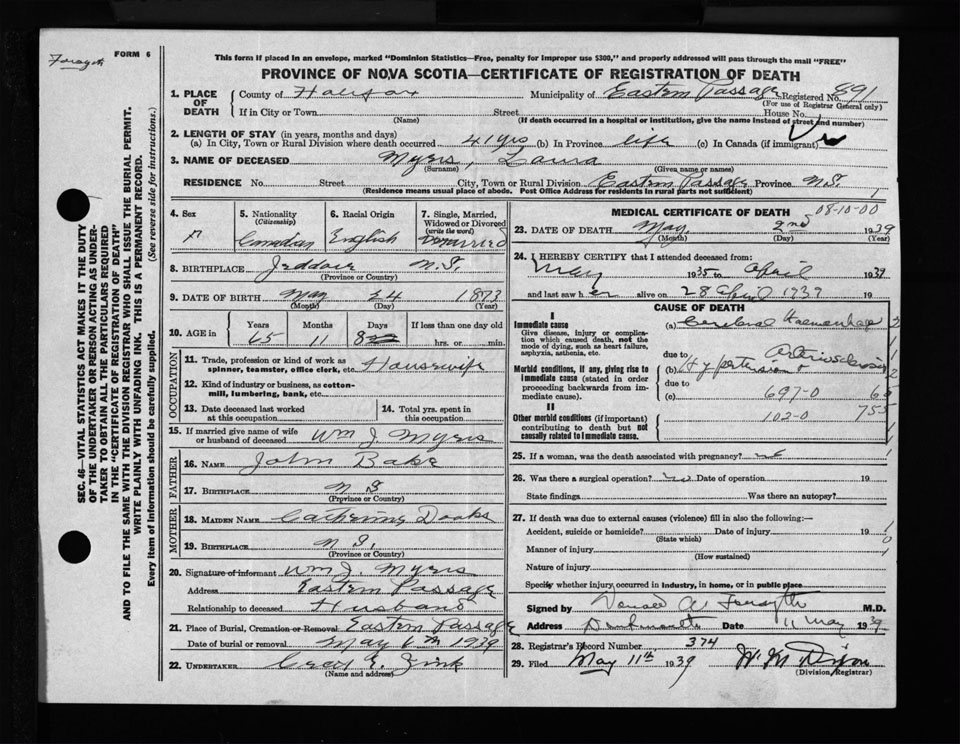 Forsyth
FORM 6
This form if placed in an envelope, marked "Dominion Statistics—Free, penalty for improper use $300," and properly addressed will pass through the mail "FREE"
PROVINCE OF NOVA SCOTIA—CERTIFICATE OF REGISTRATION OF DEATH
SEC. 46—VITAL STATISTICS ACT MAKES IT THE DUTY
OF THE UNDERTAKER OR PERSON ACTING AS UNDER-
TAKER TO OBTAIN ALL THE PARTICULARS REQUIRED
IN THE "CERTIFICATE OF REGISTRATION OF DEATH"
AND TO FILE THE SAME WITH THE DIVISION REGISTRAR WHO SHALL ISSUE THE BURIAL PERMIT.
WRITE PLAINLY WITH UNFADING INK. THIS IS A PERMANENT RECORD.
Every item of information should be carefully supplied. (See reverse side for instructions.)
1. PLACE OF DEATH
County of Halifax Municipality of Eastern Passage Registered No. 891
(For use of Registrar General only)
If in City or Town Street House No.
(Name) (If death occurred in a hospital or institution, give the name instead of street and number)
2. LENGTH OF STAY (in years, months and days)
(a) In City, Town or Rural Division where death occurred 41 yrs (b) In Province life (c) In Canada (if immigrant)
3. NAME OF DECEASED Myers, Laura
(Surname) (Given name or names)
RESIDENCE No. Street City, Town or Rural Division Eastern Passage Province N.S.
(Residence means usual place of abode. Post Office Address for residents in rural parts not sufficient)
4. Sex F
5. Nationality (Citizenship) Canadian
6. Racial Origin English
7. Single, Married, Widowed or Divorced (write the word) Married
8. BIRTHPLACE Jeddore N.S.
(Province or Country)
9. DATE OF BIRTH May 24 1873
(Month) (Day) (Year)
10. AGE in Years 65 Months 11 Days 8 If less than one day hrs. or min.
OCCUPATION
11. Trade, profession or kind of work as spinner, teamster, office clerk, etc. Housewife
12. Kind of industry or business, as cotton-mill, lumbering, bank, etc.
13. Date deceased last worked at this occupation
14. Total yrs. spent in this occupation
15. If married give name of wife or husband of deceased Wm J. Myers
FATHER
16. NAME John Baker
17. BIRTHPLACE N S
(Province or Country)
MOTHER
18. MAIDEN NAME Catherine Dooks
19. BIRTHPLACE N.S.
(Province or Country)
20. Signature of informant Wm J. Myers
Address Eastern Passage
Relationship to deceased Husband
21. Place of Burial, Cremation or Removal Eastern Passage
Date of burial or removal May 6th 1939
22. UNDERTAKER Cecil E. Zink
(Name and address)
MEDICAL CERTIFICATE OF DEATH
08-10-00
23. DATE OF DEATH May 2nd 1939
(Month) (Day) (Year)
24. I HEREBY CERTIFY that I attended deceased from:
May 1935 to April 1939
and last saw her alive on 28 April 1939 19
CAUSE OF DEATH
I
Immediate cause
Give disease, injury or complication which caused death, not the mode of dying, such as heart failure, asphyxia, asthenia, etc.
(a) Cerebral Haemorrhage
due to Arteriosclerosis
Morbid conditions, if any, giving rise to immediate cause (stated in order proceeding backwards from immediate cause).
(b) Hypertension +
due to
(c) 697-0
II
Other morbid conditions (if important) contributing to death but not causally related to immediate cause.
102-0
25. If a woman, was the death associated with pregnancy?
26. Was there a surgical operation? no Date of operation 19
State findings Was there an autopsy?
27. If death was due to external causes (violence) fill in also the following:—
Accident, suicide or homicide? Date of injury 19
(State which)
Manner of injury
(How sustained)
Nature of injury
Specify whether injury occurred in industry, in home, or in public place
Signed by Donald A Forsyth M.D.
Address Dartmouth Date 11 May 1939
28. Registrar's Record Number 374
29. Filed May 11th 1939 W. M. Dixon
(Division Registrar)